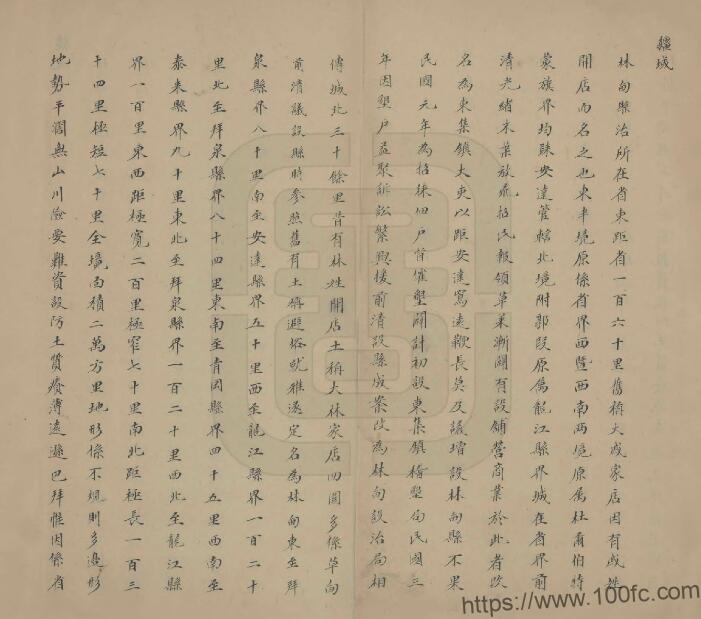 疆域
林甸縣治所在省東距省一百六十里舊稱大戎家店因有戎姓
開店而名之也東半境原係省界西暨西南兩境原屬杜爾伯特
蒙旗界均隸安達管轄北境附郭段原屬龍江縣界城在省界前
清光緒末葉放荒招民報領草萊漸闢有設舖營商業於此者改
名為東集鎮大吏以距安達窵遠鞭長莫及議增設林甸縣不果
民國元年為招徠佃戶督催墾闢計初設東集鎮稽墾局民國三
年因墾戶益聚訴訟繁興援前清設縣成案改為林甸設治局相
傳城北三十餘里昔有林姓開店土稱大林家店四圍多係草甸
前清議設縣時參照舊有土稱避俗就雅遂定名為林甸東至拜
泉縣界八十里南至安達縣界五十里西至龍江縣界一百二十
里北至拜泉縣界八十四里東南至青岡縣界四十五里西南至
泰來縣界九十里東北至拜泉縣界一百二十里西北至龍江縣
界一百里東西距極寬二百里極窄七十里南北距極長一百三
十四里極短七十里全境面積二萬方里地形係不規則多邊形
地勢平濶無山川險要難資設防土質瘠薄遠遜巴拜惟因係省
https://www.100fc.com